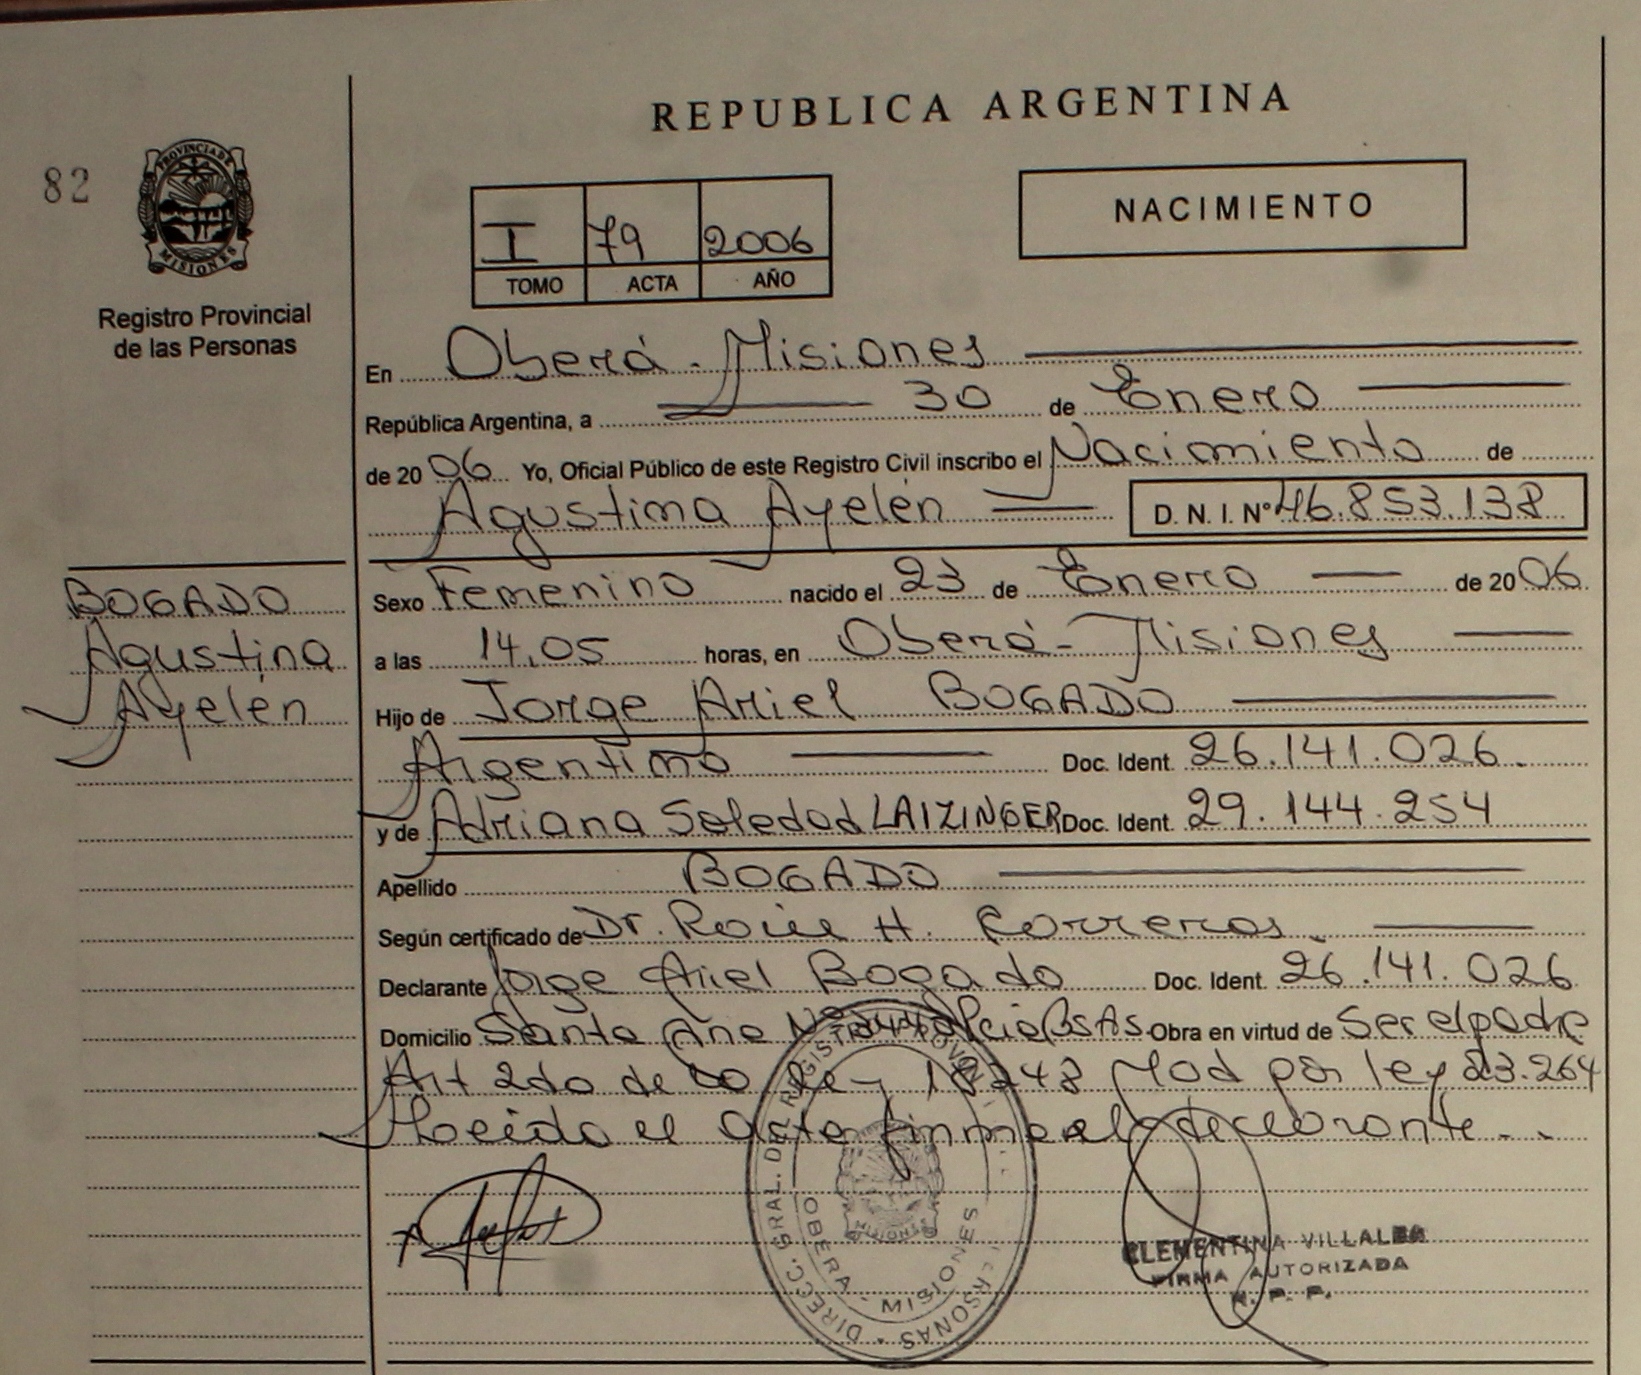 REPUBLICA ARGENTINA
82
PROVINCIA DE
MISIONES
Registro Provincial
de las Personas
I 79 2006
TOMO ACTA AÑO
NACIMIENTO
En Oberá - Misiones
República Argentina, a 30 de Enero
de 2006 Yo, Oficial Público de este Registro Civil inscribo el Nacimiento de
Agustina Ayelén D. N. I. Nº 46.853.138
BOGADO
Agustina
Ayelén
Sexo Femenino nacido el 23 de Enero de 2006.
a las 14,05 horas, en Oberá - Misiones
Hijo de Jorge Ariel BOGADO
Argentino Doc. Ident. 26.141.026.
y de Adriana Soledad LAIZINGER Doc. Ident. 29.144.254
Apellido BOGADO
Según certificado de Dr. H.
Declarante Jorge Ariel Bogado Doc. Ident. 26.141.026
Domicilio Santa Ana Pcia Bs As. Obra en virtud de Ser el padre
Art 2do de la Ley 18248 Mod por ley 23.264
el acta firma el declarante..
DIRECC. GRAL. DE REGISTRO PERSONAS
OBERA - MISIONES
CLEMENTINA VILLALBA
FIRMA AUTORIZADA
R. P. P.